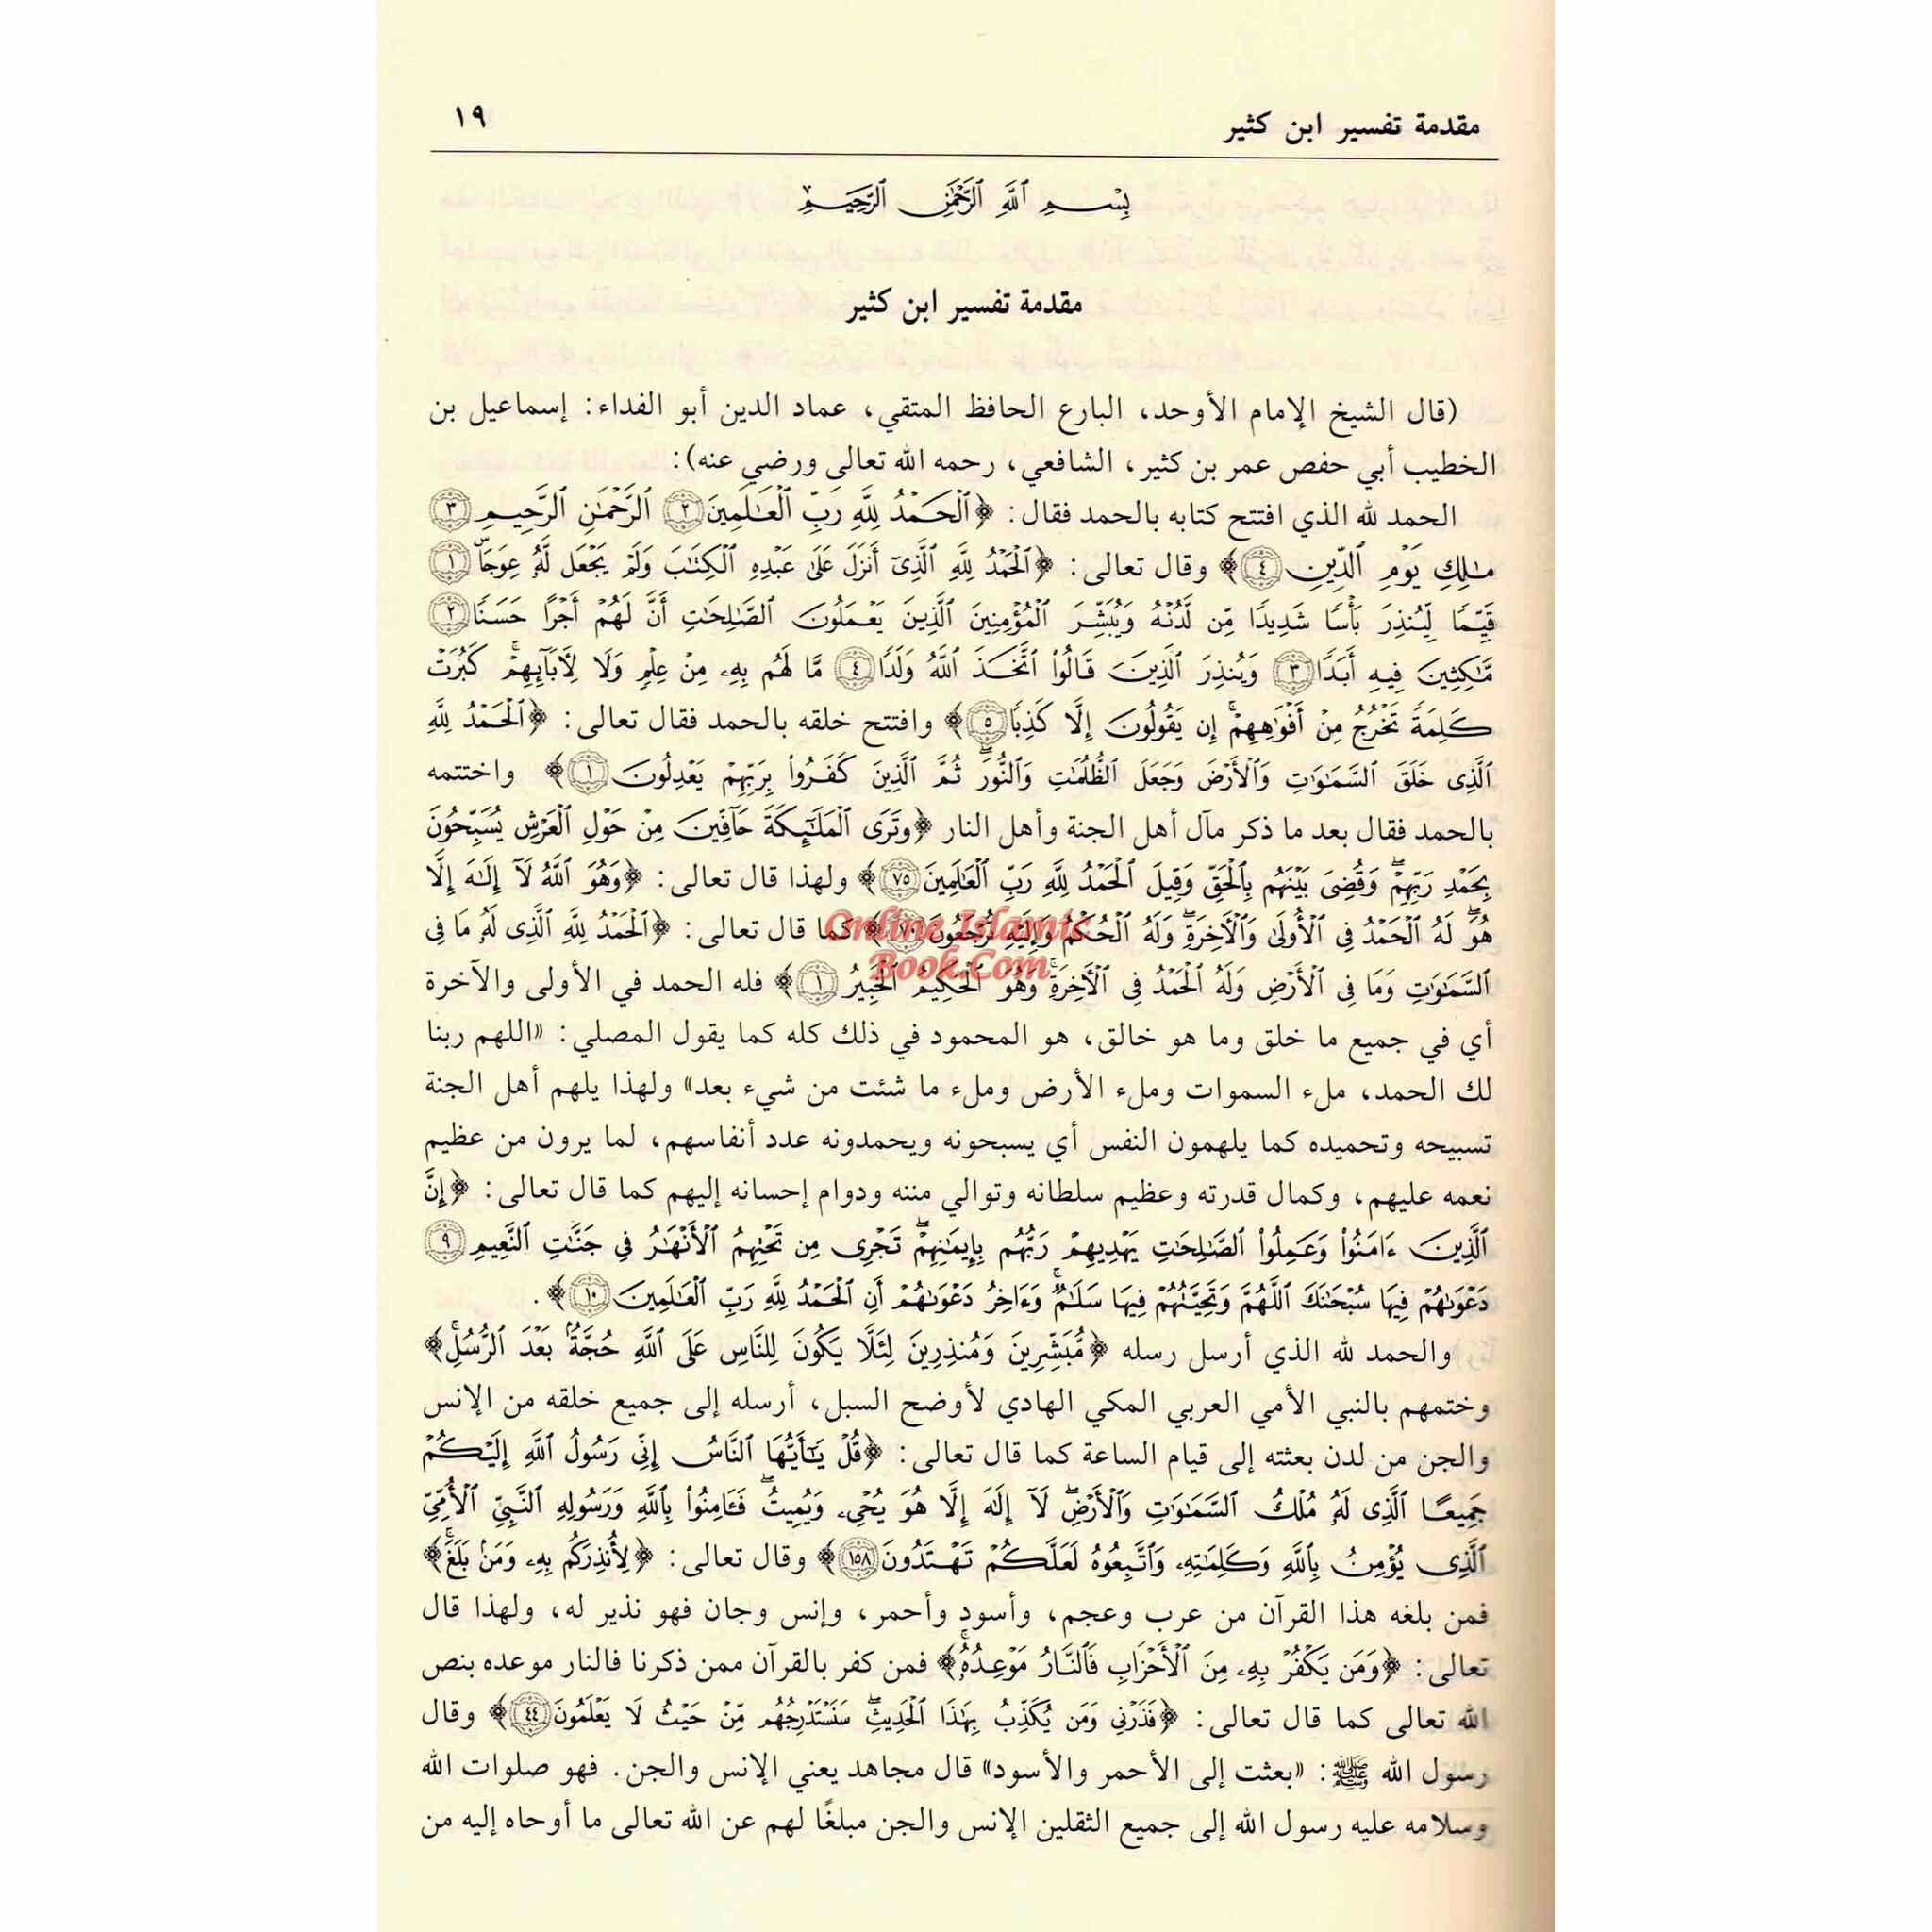 مقدمة تفسير ابن كثير ١٩
بِسْمِ ٱللَّهِ ٱلرَّحْمَٰنِ ٱلرَّحِيمِ
مقدمة تفسير ابن كثير
(قال الشيخ الإمام الأوحد، البارع الحافظ المتقي، عماد الدين أبو الفداء: إسماعيل بن
الخطيب أبي حفص عمر بن كثير، الشافعي، رحمه الله تعالى ورضي عنه):
الحمد لله الذي افتتح كتابه بالحمد فقال: ﴿ٱلْحَمْدُ لِلَّهِ رَبِّ ٱلْعَٰلَمِينَ ٢ ٱلرَّحْمَٰنِ ٱلرَّحِيمِ ٣
مَٰلِكِ يَوْمِ ٱلدِّينِ ٤﴾ وقال تعالى: ﴿ٱلْحَمْدُ لِلَّهِ ٱلَّذِىٓ أَنزَلَ عَلَىٰ عَبْدِهِ ٱلْكِتَٰبَ وَلَمْ يَجْعَل لَّهُۥ عِوَجَاۜ ١
قَيِّمًا لِّيُنذِرَ بَأْسًا شَدِيدًا مِّن لَّدُنْهُ وَيُبَشِّرَ ٱلْمُؤْمِنِينَ ٱلَّذِينَ يَعْمَلُونَ ٱلصَّٰلِحَٰتِ أَنَّ لَهُمْ أَجْرًا حَسَنًا ٢
مَّٰكِثِينَ فِيهِ أَبَدًا ٣ وَيُنذِرَ ٱلَّذِينَ قَالُوا۟ ٱتَّخَذَ ٱللَّهُ وَلَدًا ٤ مَّا لَهُم بِهِۦ مِنْ عِلْمٍ وَلَا لِـَٔابَآئِهِمْ ۚ كَبُرَتْ
كَلِمَةً تَخْرُجُ مِنْ أَفْوَٰهِهِمْ ۚ إِن يَقُولُونَ إِلَّا كَذِبًا ٥﴾ وافتتح خلقه بالحمد فقال تعالى: ﴿ٱلْحَمْدُ لِلَّهِ
ٱلَّذِى خَلَقَ ٱلسَّمَٰوَٰتِ وَٱلْأَرْضَ وَجَعَلَ ٱلظُّلُمَٰتِ وَٱلنُّورَ ۖ ثُمَّ ٱلَّذِينَ كَفَرُوا۟ بِرَبِّهِمْ يَعْدِلُونَ ١﴾ واختتمه
بالحمد فقال بعد ما ذكر مآل أهل الجنة وأهل النار ﴿وَتَرَى ٱلْمَلَٰٓئِكَةَ حَآفِّينَ مِنْ حَوْلِ ٱلْعَرْشِ يُسَبِّحُونَ
بِحَمْدِ رَبِّهِمْ ۖ وَقُضِىَ بَيْنَهُم بِٱلْحَقِّ وَقِيلَ ٱلْحَمْدُ لِلَّهِ رَبِّ ٱلْعَٰلَمِينَ ٧٥﴾ ولهذا قال تعالى: ﴿وَهُوَ ٱللَّهُ لَآ إِلَٰهَ إِلَّا
هُوَ ۖ لَهُ ٱلْحَمْدُ فِى ٱلْأُولَىٰ وَٱلْـَٔاخِرَةِ ۖ وَلَهُ ٱلْحُكْمُ وَإِلَيْهِ تُرْجَعُونَ ٧٠﴾ كما قال تعالى: ﴿ٱلْحَمْدُ لِلَّهِ ٱلَّذِى لَهُۥ مَا فِى
Online Islamic
Book.Com
ٱلسَّمَٰوَٰتِ وَمَا فِى ٱلْأَرْضِ وَلَهُ ٱلْحَمْدُ فِى ٱلْـَٔاخِرَةِ ۚ وَهُوَ ٱلْحَكِيمُ ٱلْخَبِيرُ ١﴾ فله الحمد في الأولى والآخرة
أي في جميع ما خلق وما هو خالق، هو المحمود في ذلك كله كما يقول المصلي: «اللهم ربنا
لك الحمد، ملء السموات وملء الأرض وملء ما شئت من شيء بعد» ولهذا يلهم أهل الجنة
تسبيحه وتحميده كما يلهمون النفس أي يسبحونه ويحمدونه عدد أنفاسهم، لما يرون من عظيم
نعمه عليهم، وكمال قدرته وعظيم سلطانه وتوالي مننه ودوام إحسانه إليهم كما قال تعالى: ﴿إِنَّ
ٱلَّذِينَ ءَامَنُوا۟ وَعَمِلُوا۟ ٱلصَّٰلِحَٰتِ يَهْدِيهِمْ رَبُّهُم بِإِيمَٰنِهِمْ ۖ تَجْرِى مِن تَحْتِهِمُ ٱلْأَنْهَٰرُ فِى جَنَّٰتِ ٱلنَّعِيمِ ٩
دَعْوَىٰهُمْ فِيهَا سُبْحَٰنَكَ ٱللَّهُمَّ وَتَحِيَّتُهُمْ فِيهَا سَلَٰمٌ ۚ وَءَاخِرُ دَعْوَىٰهُمْ أَنِ ٱلْحَمْدُ لِلَّهِ رَبِّ ٱلْعَٰلَمِينَ ١٠﴾.
والحمد لله الذي أرسل رسله ﴿مُّبَشِّرِينَ وَمُنذِرِينَ لِئَلَّا يَكُونَ لِلنَّاسِ عَلَى ٱللَّهِ حُجَّةٌۢ بَعْدَ ٱلرُّسُلِ ۚ﴾
وختمهم بالنبي الأمي العربي المكي الهادي لأوضح السبل، أرسله إلى جميع خلقه من الإنس
والجن من لدن بعثته إلى قيام الساعة كما قال تعالى: ﴿قُلْ يَٰٓأَيُّهَا ٱلنَّاسُ إِنِّى رَسُولُ ٱللَّهِ إِلَيْكُمْ
جَمِيعًا ٱلَّذِى لَهُۥ مُلْكُ ٱلسَّمَٰوَٰتِ وَٱلْأَرْضِ ۖ لَآ إِلَٰهَ إِلَّا هُوَ يُحْىِۦ وَيُمِيتُ ۖ فَـَٔامِنُوا۟ بِٱللَّهِ وَرَسُولِهِ ٱلنَّبِىِّ ٱلْأُمِّىِّ
ٱلَّذِى يُؤْمِنُ بِٱللَّهِ وَكَلِمَٰتِهِۦ وَٱتَّبِعُوهُ لَعَلَّكُمْ تَهْتَدُونَ ١٥٨﴾ وقال تعالى: ﴿لِأُنذِرَكُم بِهِۦ وَمَنۢ بَلَغَ ۚ﴾
فمن بلغه هذا القرآن من عرب وعجم، وأسود وأحمر، وإنس وجان فهو نذير له، ولهذا قال
تعالى: ﴿وَمَن يَكْفُرْ بِهِۦ مِنَ ٱلْأَحْزَابِ فَٱلنَّارُ مَوْعِدُهُۥ ۚ﴾ فمن كفر بالقرآن ممن ذكرنا فالنار موعده بنص
الله تعالى كما قال تعالى: ﴿فَذَرْنِى وَمَن يُكَذِّبُ بِهَٰذَا ٱلْحَدِيثِ ۖ سَنَسْتَدْرِجُهُم مِّنْ حَيْثُ لَا يَعْلَمُونَ ٤٤﴾ وقال
رسول الله ﷺ: «بعثت إلى الأحمر والأسود» قال مجاهد يعني الإنس والجن. فهو صلوات الله
وسلامه عليه رسول الله إلى جميع الثقلين الإنس والجن مبلغًا لهم عن الله تعالى ما أوحاه إليه من